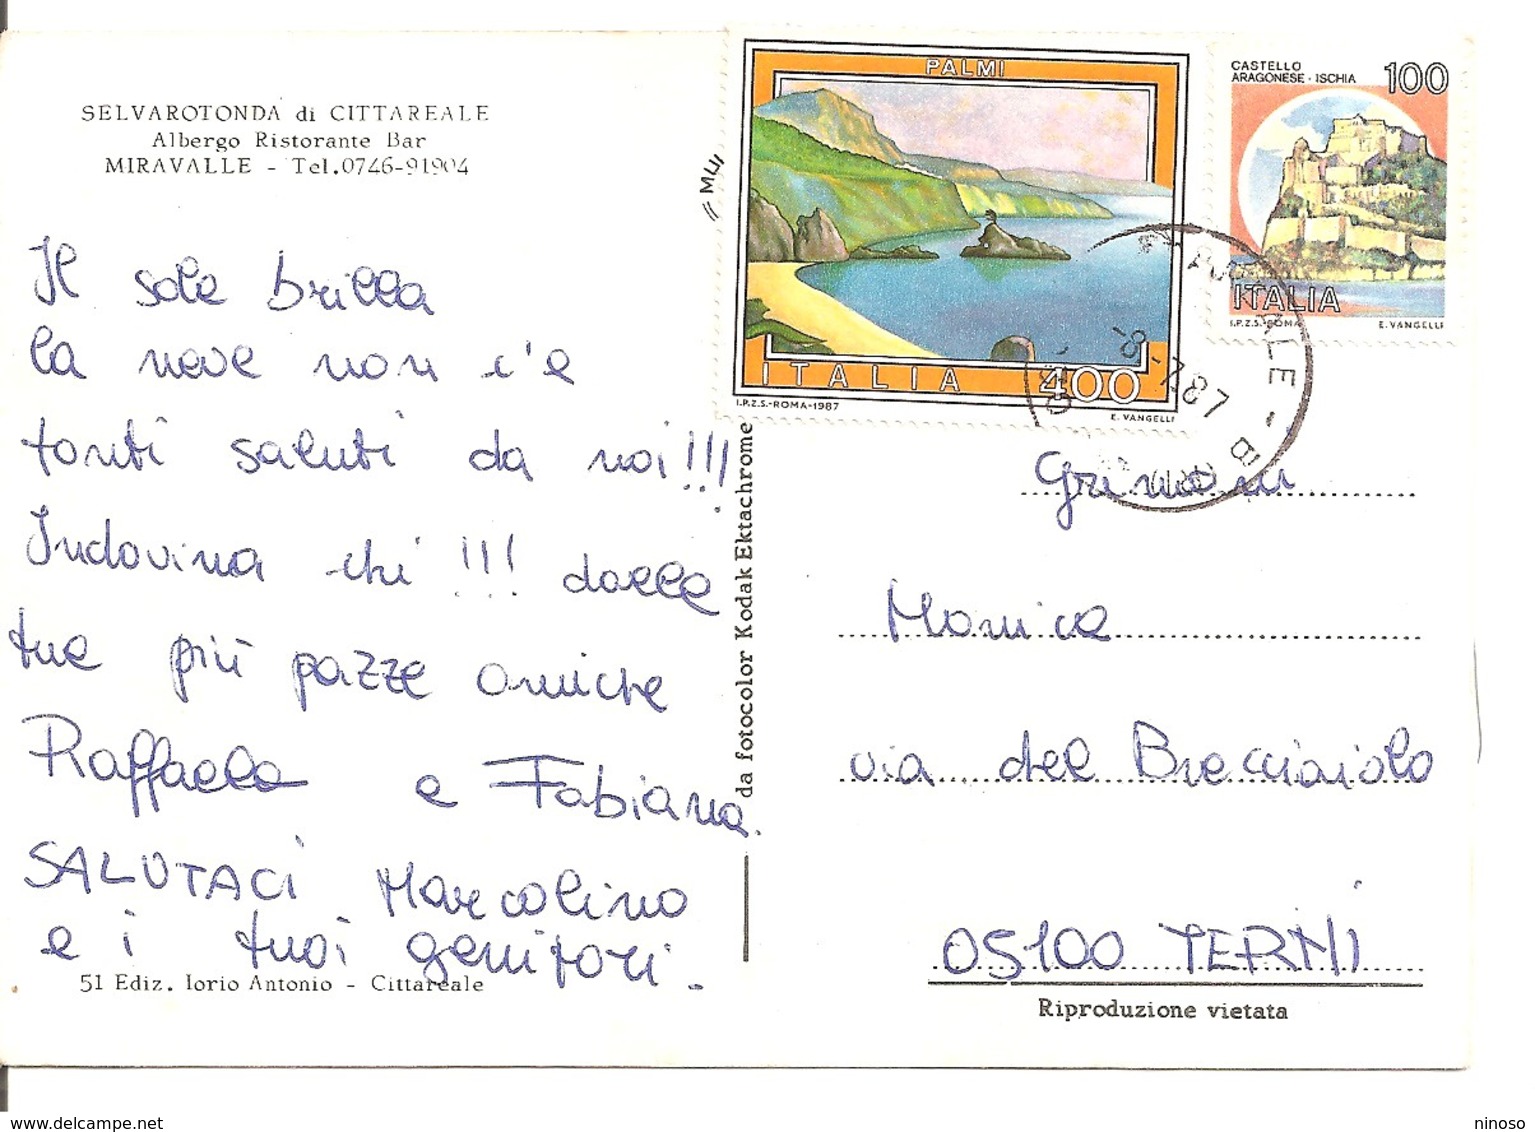 SELVAROTONDA di CITTAREALE
Albergo Ristorante Bar
MIRAVALLE - Tel.0746-91904
Il sole brilla
la neve non c'è
tanti saluti da noi!!!
Indovina chi!!! dalle
tue più pazze amiche
Raffaela e Fabiana.
SALUTACI Marcolino
e i tuoi genitori.
51 Ediz. Iorio Antonio - Cittareale
da fotocolor Kodak Ektachrome
PALMI
ITALIA 400
I.P.Z.S.-ROMA-1987 E. VANGELLI
CASTELLO
ARAGONESE - ISCHIA 100
ITALIA
I.P.Z.S.-ROMA E. VANGELLI
-8-7.87
Grimani
Monica
via del Brecciaiolo
05100 TERNI
Riproduzione vietata
delcampe.net
ninoso